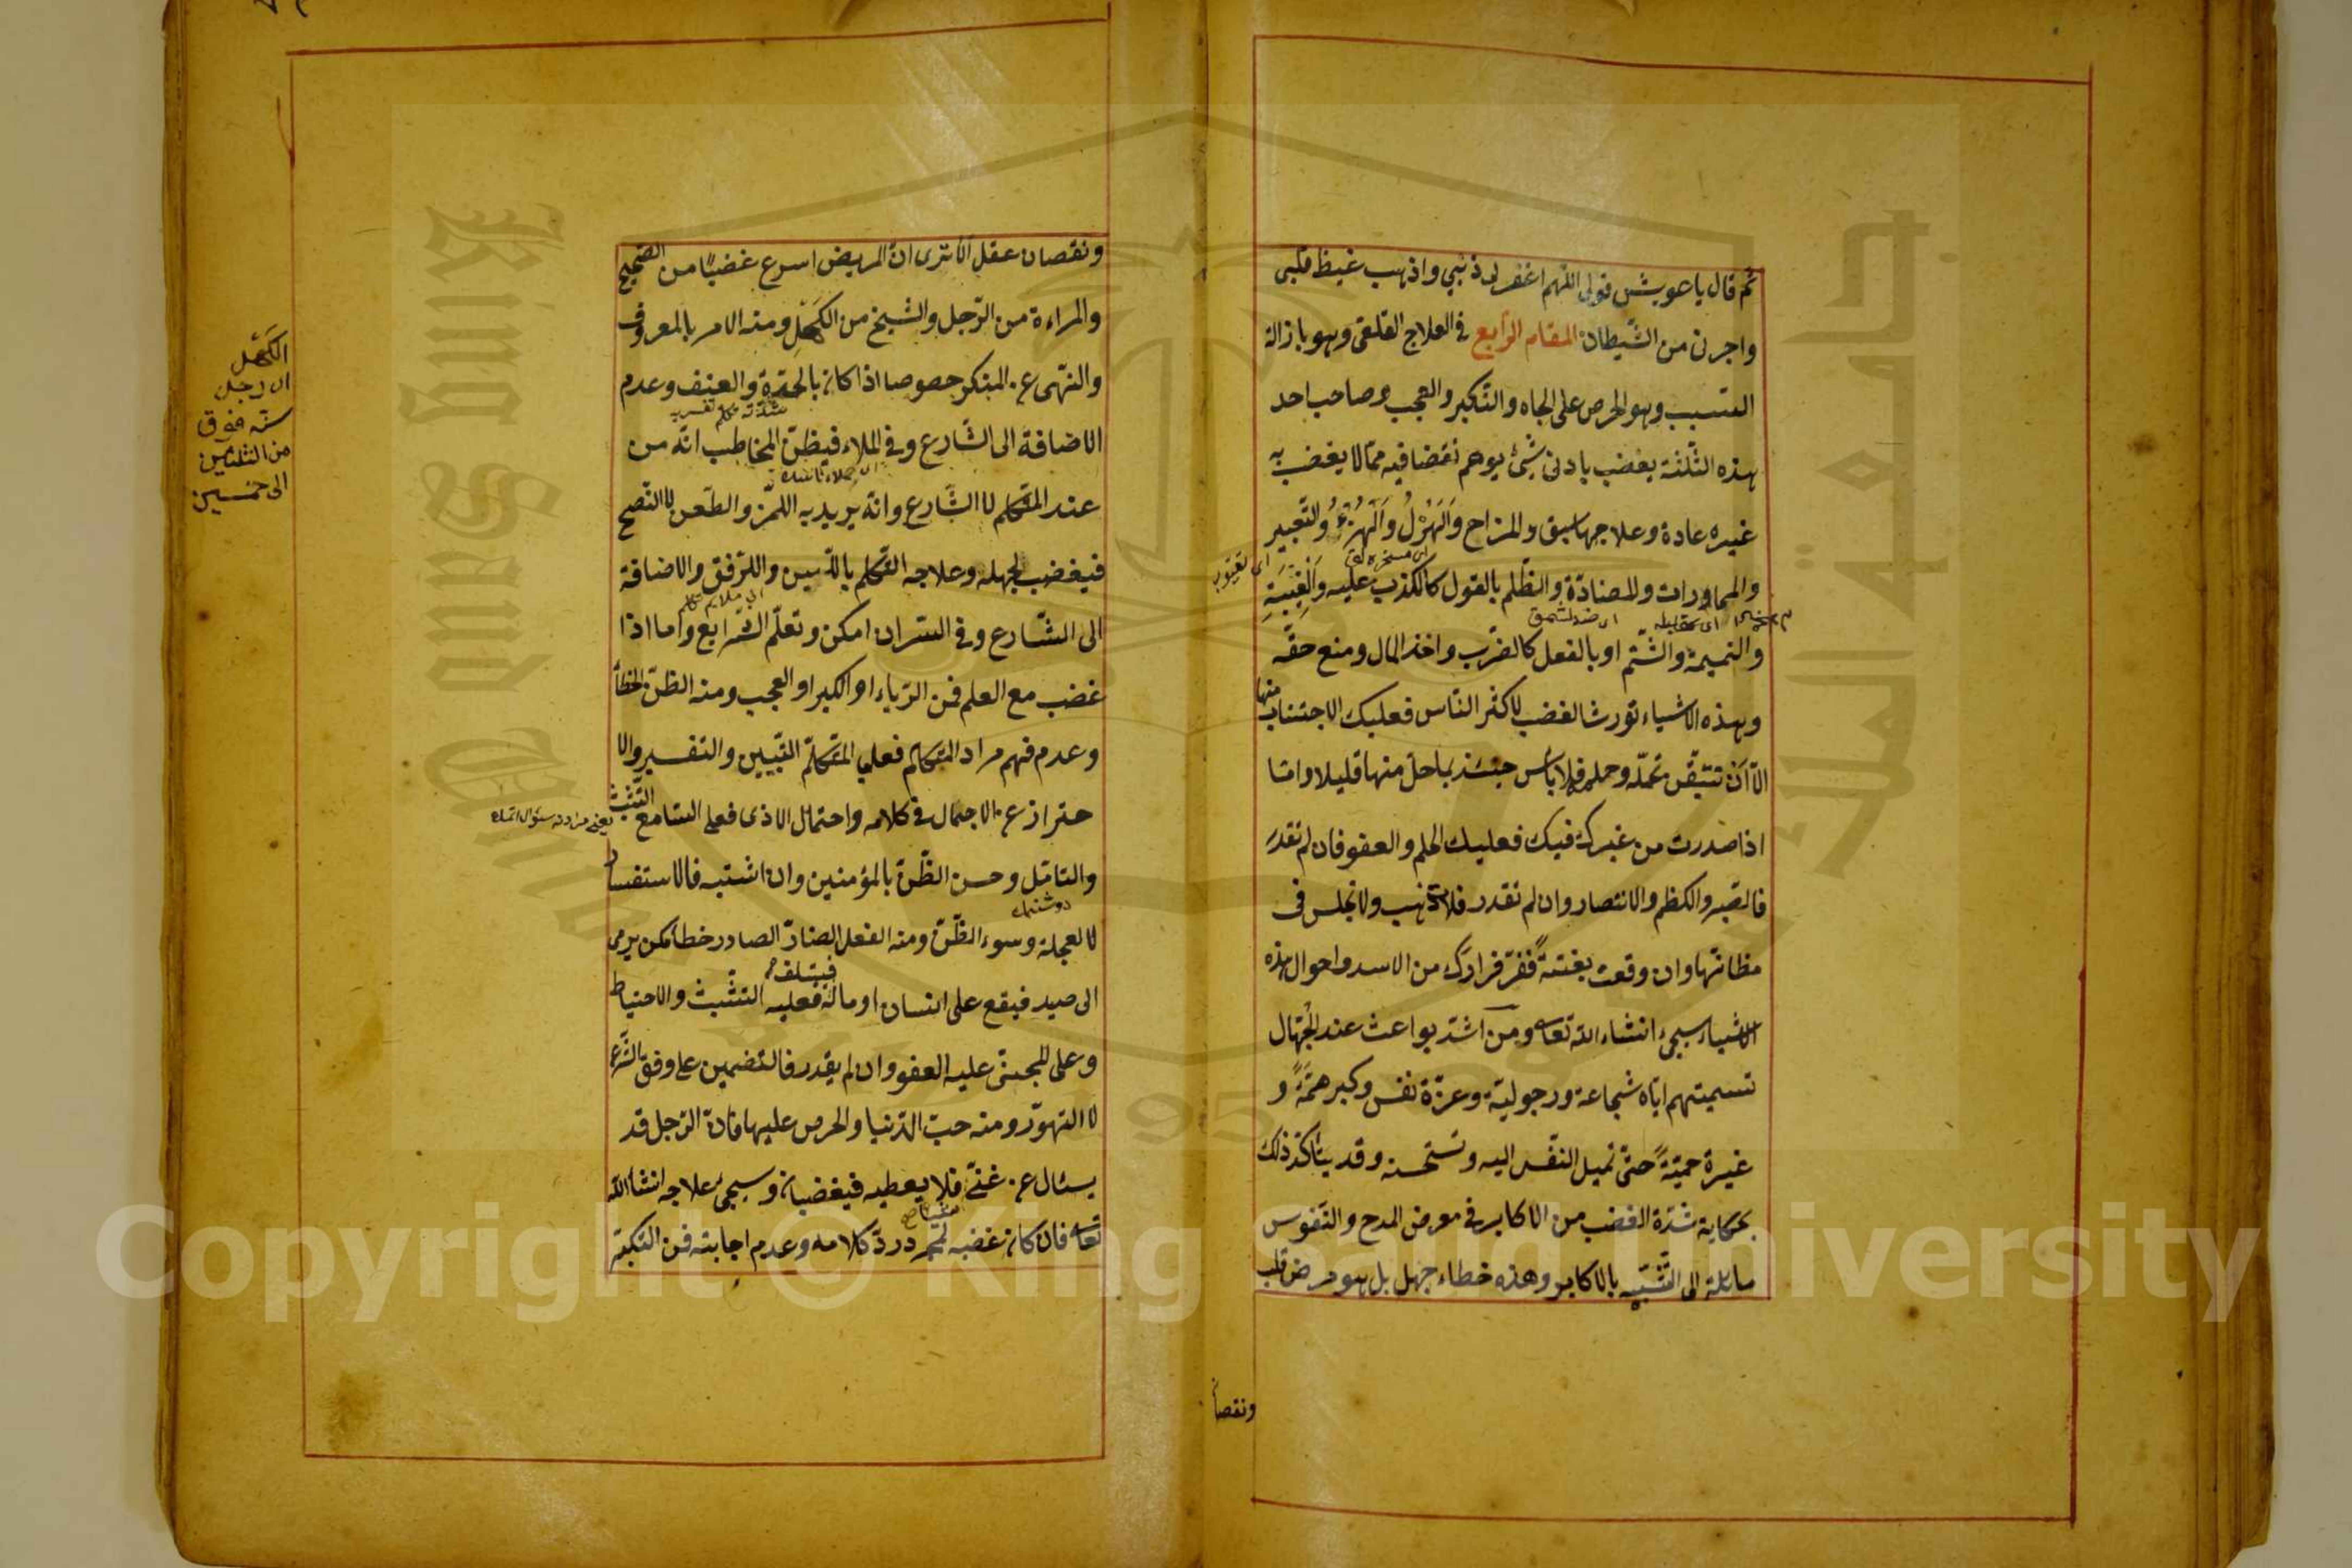 ثم قال يا عويش قولى اللهم اغفر لى ذنبي واذهب غيظ قلبى
واجرنى من الشيطان المقام الرابع فى العلاج القلعى وهو بازالة
السبب وهو الحرص على الجاه والتكبر والعجب وصاحب احد
هذه الثلثة يغضب بادنى شئ يوهم نقضا فيه مما لا يغضب به
غيره عادة وعلاجها سبق والمزاح وَالهَزْلُ وَالهُزْءُ والتعيير
والمماورات والمضادّة والظّلم بالقول كالكذب عليه وَالغِيْبَةِ
والنميمة والشّتم او بالفعل كالضّرب واخذ المال ومنع حقّه
وهذه الاشياء تورث الغضب لاكثر النّاس فعليك الاجتناب منها
الّا اَنْ تتيقّن تحمّله وحمله فلا بأس حينئذ بما حلّ منها قليلا وامّا
اذا صدرت من غيرك فيك فعليك الحلم والعفو فان لم تقدر
فالصّبر والكظم والانتصار وان لم تقدر فلا تذهب ولا تجلس فى
مظانها وان وقعت بغتةً ففرّ فرارك من الاسد واحوال هذه
الاشياء سيجئ انشاء الله تعا ومن اشدّ بواعث عند الجُهّال
تسميتهم ايّاه شجاعة ورجوليّة وعزّة نفس وكبر همّةً و
غيرة حميّةً حتّى تميل النفس اليه وتستحسنه وقد يتأكّد ذلك
بحكاية شدّة الغضب من الاكابر فى معرض المدح والنّفوس
مائلة الى التّشبّه بالاكابر وهذه خطاء جهل بل هو مرض قلب
ونقصا
ونقصان عقل الا ترى انّ المريض اسرع غضبًا من الصّحيح
والمراءة من الرّجل والشيخ من الكَهْلِ ومنه الامر بالمعروف
والنّهى عن المنكر خصوصا اذا كان بالحدّة والعنف وعدم
الاضافة الى الشّارع وفى الملاء فيظنّ المخاطب انّه من
عند المتكلّم لا الشّارع وانّه يريد به اللمز والطّعن لا النّصح
فيغضب لجهله وعلاجه التّكلّم باللّين والترّفق والاضافة
الى الشّارع وفى السرّ ان امكن وتعلّم الشّرايع وامّا اذا
غضب مع العلم فمن الرّياء او الكبر او العجب ومنه الظنّ الخطأ
وعدم فهم مراد المتكلّم فعلى المتكلّم التّبيين والتفسير والا
حتراز عن الاجمال فى كلامه واحتمال الاذى فعلى السّامع التّثبّت
والتامّل وحسن الظّنّ بالمؤمنين وان اشتبه فالاستفسار
لا لعجلة وسوء الظّنّ ومنه الفعل الضّارّ الصادر خطأ كمن يرمى
الى صيد فيقع على انسان او ماله فيتلف فعليه التّثبّت والاحتياط
وعلى المجنىّ عليه العفو وان لم يقدر فالتضمين على وفق الشّرع
لا التهوّر ومنه حبّ الدّنيا والحرص عليها فانّ الرّجل قد
يسئال عن غنىّ فلا يعطيه فيغضبان وسيجئ علاجه انشاالله
تعا فان كان غضبه لمجرّد ردّ كلامه وعدم اجابته فمن التكبّر
الكَهْل
اى رجل
سنّه فوق
من الثلثين
الى خمسين
Copyright © King Saud University
King Saud University
جامعة الملك سعود